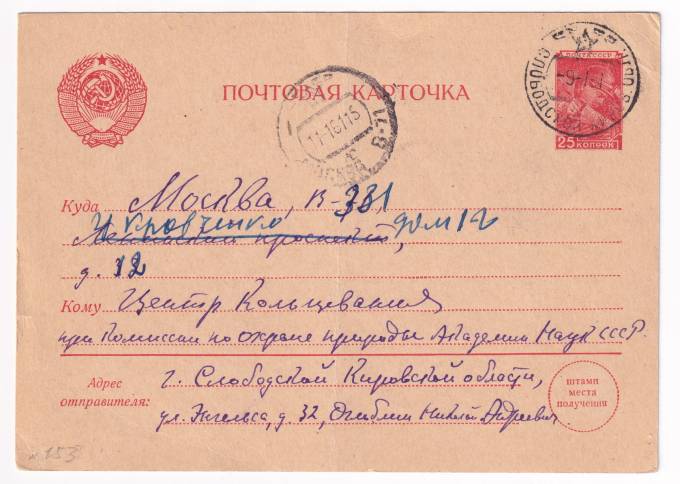 ПОЧТОВАЯ КАРТОЧКА
ПОЧТА СССР
25 КОПЕЕК
МОСКВА В-71
11-1 61 15
Куда Москва, В-331
Кравченко дом 12
Ленинский проспект,
д. 12
Кому Центр Кольцевания
при Комиссии по охране природы Академии Наук СССР.
Адрес отправителя: г. Слободской Кировской области,
ул. Энгельса, д. 32, Огиблин Николай Андреевич
штамп
места
получения
№ 153